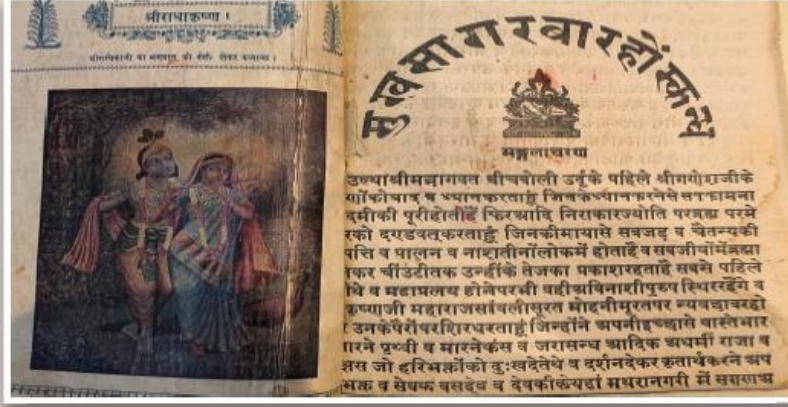 श्रीराधाकृष्ण ।
सुखसागर बारहों स्कन्ध
मङ्गलाचरण
उल्थाश्रीमद्भागवत बीचबोली उर्दूके पहिले श्रीगणेशजीके
णोंकोयाद व ध्यानकरताहूं जिनकेध्यानकरनेसे सबकामना
दमीकी पूरीहोतीहैं फिरआदि निराकारज्योति परब्रह्म परमे
रको दण्डवत्करताहूं जिनकीमायासे सबजड़ व चैतन्यकी
पत्ति व पालन व नाशतीनोंलोकमें होताहै व सबजीवोंमेंब्रह्मा
कर चींउंटीतक उन्हींके तेजका प्रकाशरहताहै सबसे पहिले
थे व महाप्रलय होनेपरभी वहीअविनाशीपुरुष स्थिररहेंगे व
कृष्णजी महाराजसांवलीसूरत मोहनीमूरतपर न्यवछावरहो
उनकेपैरोंपरशिरधरताहूं जिन्होंने अपनीइच्छासे वास्तेभार
ारने पृथ्वी व मारनेकंस व जरासन्ध आदिक अधर्मी राजा व
क्षस जो हरिभक्तोंको दुःखदेतेथे व दर्शनदेकर कृतार्थकरने अप
भक्त व सेवक वसुदेव व देवकीकेयहां मथुरानगरी में सगुणअ